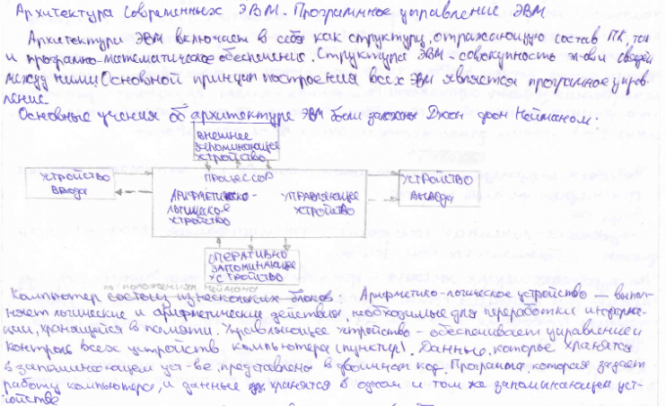 Архитектура современных ЭВМ. Программное управление ЭВМ
Архитектура ЭВМ включает в себя как структуру, отражающую состав ПК, так
и программно-математическое обеспечение. Структура ЭВМ - совокупность эл-ов и связей
между ними. Основной принцип построения всех ЭВМ является программное управ-
ление.
Основные учения об архитектуре ЭВМ были заложены Джон фон Нейманом.
ВНЕШНЕЕ
ЗАПОМИНАЮЩЕЕ
УСТРОЙСТВО
УСТРОЙСТВО
ВВОДА
ПРОЦЕССОР
АРИФМЕТИЧЕСКО-
ЛОГИЧЕСКОЕ
УСТРОЙСТВО
УПРАВЛЯЮЩЕЕ
УСТРОЙСТВО
УСТРОЙСТВО
ВЫВОДА
ОПЕРАТИВНО
ЗАПОМИНАЮЩЕЕ
УСТРОЙСТВО
положения Неймана
Компьютер состоит из нескольких блоков. Арифметико-логическое устройство — выпол-
няет логические и арифметические действия, необходимые для переработки информа-
ции, хранящейся в памяти. Управляющее устройство - обеспечивает управление и
контроль всех устройств компьютера (пунктир). Данные, которые хранятся
в запоминающем уст-ве, представлены в двоичном код. Программа, которая задает
работу компьютера, и данные хранятся в одном и том же запоминающем уст-
ройстве